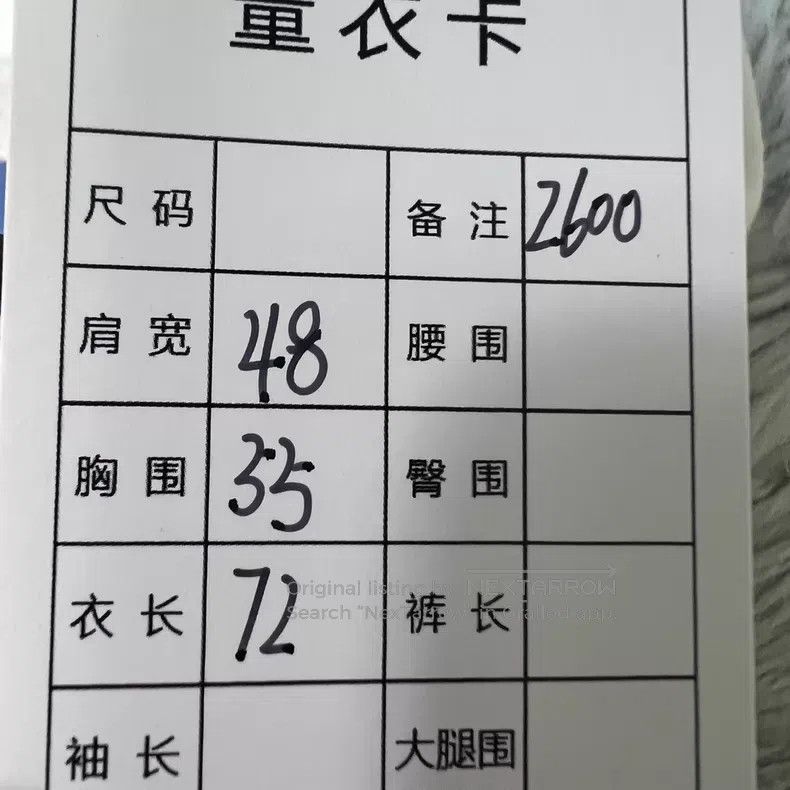 量衣卡
尺码 备注 2600
肩宽 48 腰围
胸围 55 臀围
衣长 72 裤长
Original listing by NEXTARROW
Search "NexTArrow" on Grailed app.
袖长 大腿围